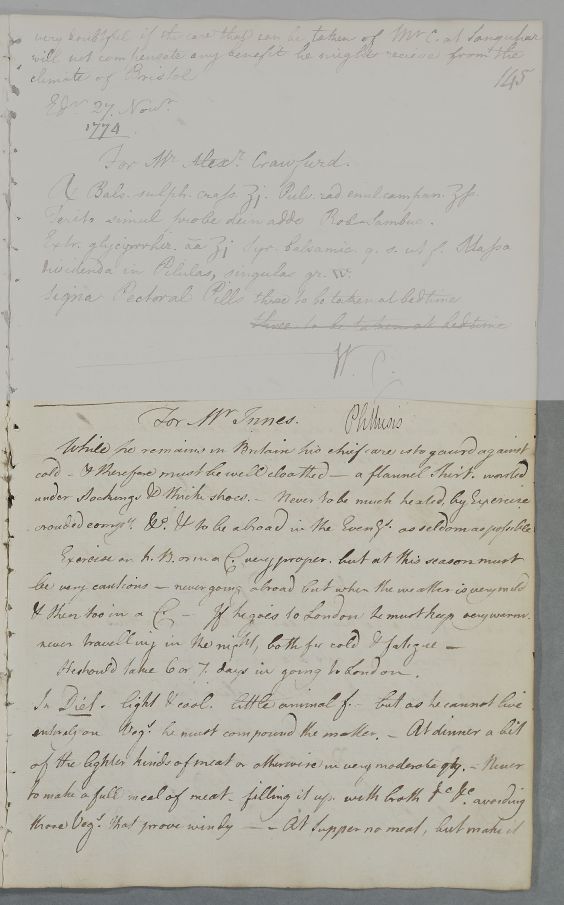 very doubtful if the care that can be taken of Mr C. at Sanquhar
will not compensate any benefit he might recieve from the
climate of Bristol
145
Edr. 27. Novr.
1774
For Mr Alexr. Crawfurd.
℞ Bals. sulph. crass. ʒj. Pulv. rad. enul. campan. ʒſs
Terito simul probe dein adde Rob. Sambuc.
Extr. glycyrrhiz. aa ʒj Syr. balsamic. q. s. ut f. Massa
dividenda in Pilulas, singulas gr. iv.
Signa Pectoral Pills three to be taken at bedtime
three to be taken at bedtime
W. C.
For Mr Innes. Phthisis
While he remains in Britain his chief care is to gaurd against
cold - & therefore must be well cloathed — a flannel Shirt. worsted
under stockings & thick shoes. - Never to be much heated, by Exercise
crouded compy. &c. & to be abroad in the Eveng. as seldom as possible
Exercise on h. B. or in a C. very proper. but at this season must
be very cautious — never going abroad but when the weather is very mild
& then too in a C — If he goes to London he must keep very warm.
never travelling in the night, both for cold & fatigue —
He should take 6 or 7. days in going to London.
In Diet. light & cool. little animal f. - but as he cannot live
entirely on Vegs. he must compound the matter. - At dinner a bit
of the lighter kinds of meat or otherwise in very moderate qty. - Never
to make a full meal of meat - filling it up with broth &c &c avoiding
those Vegs. that prove windy — - At Supper no meat, but make it